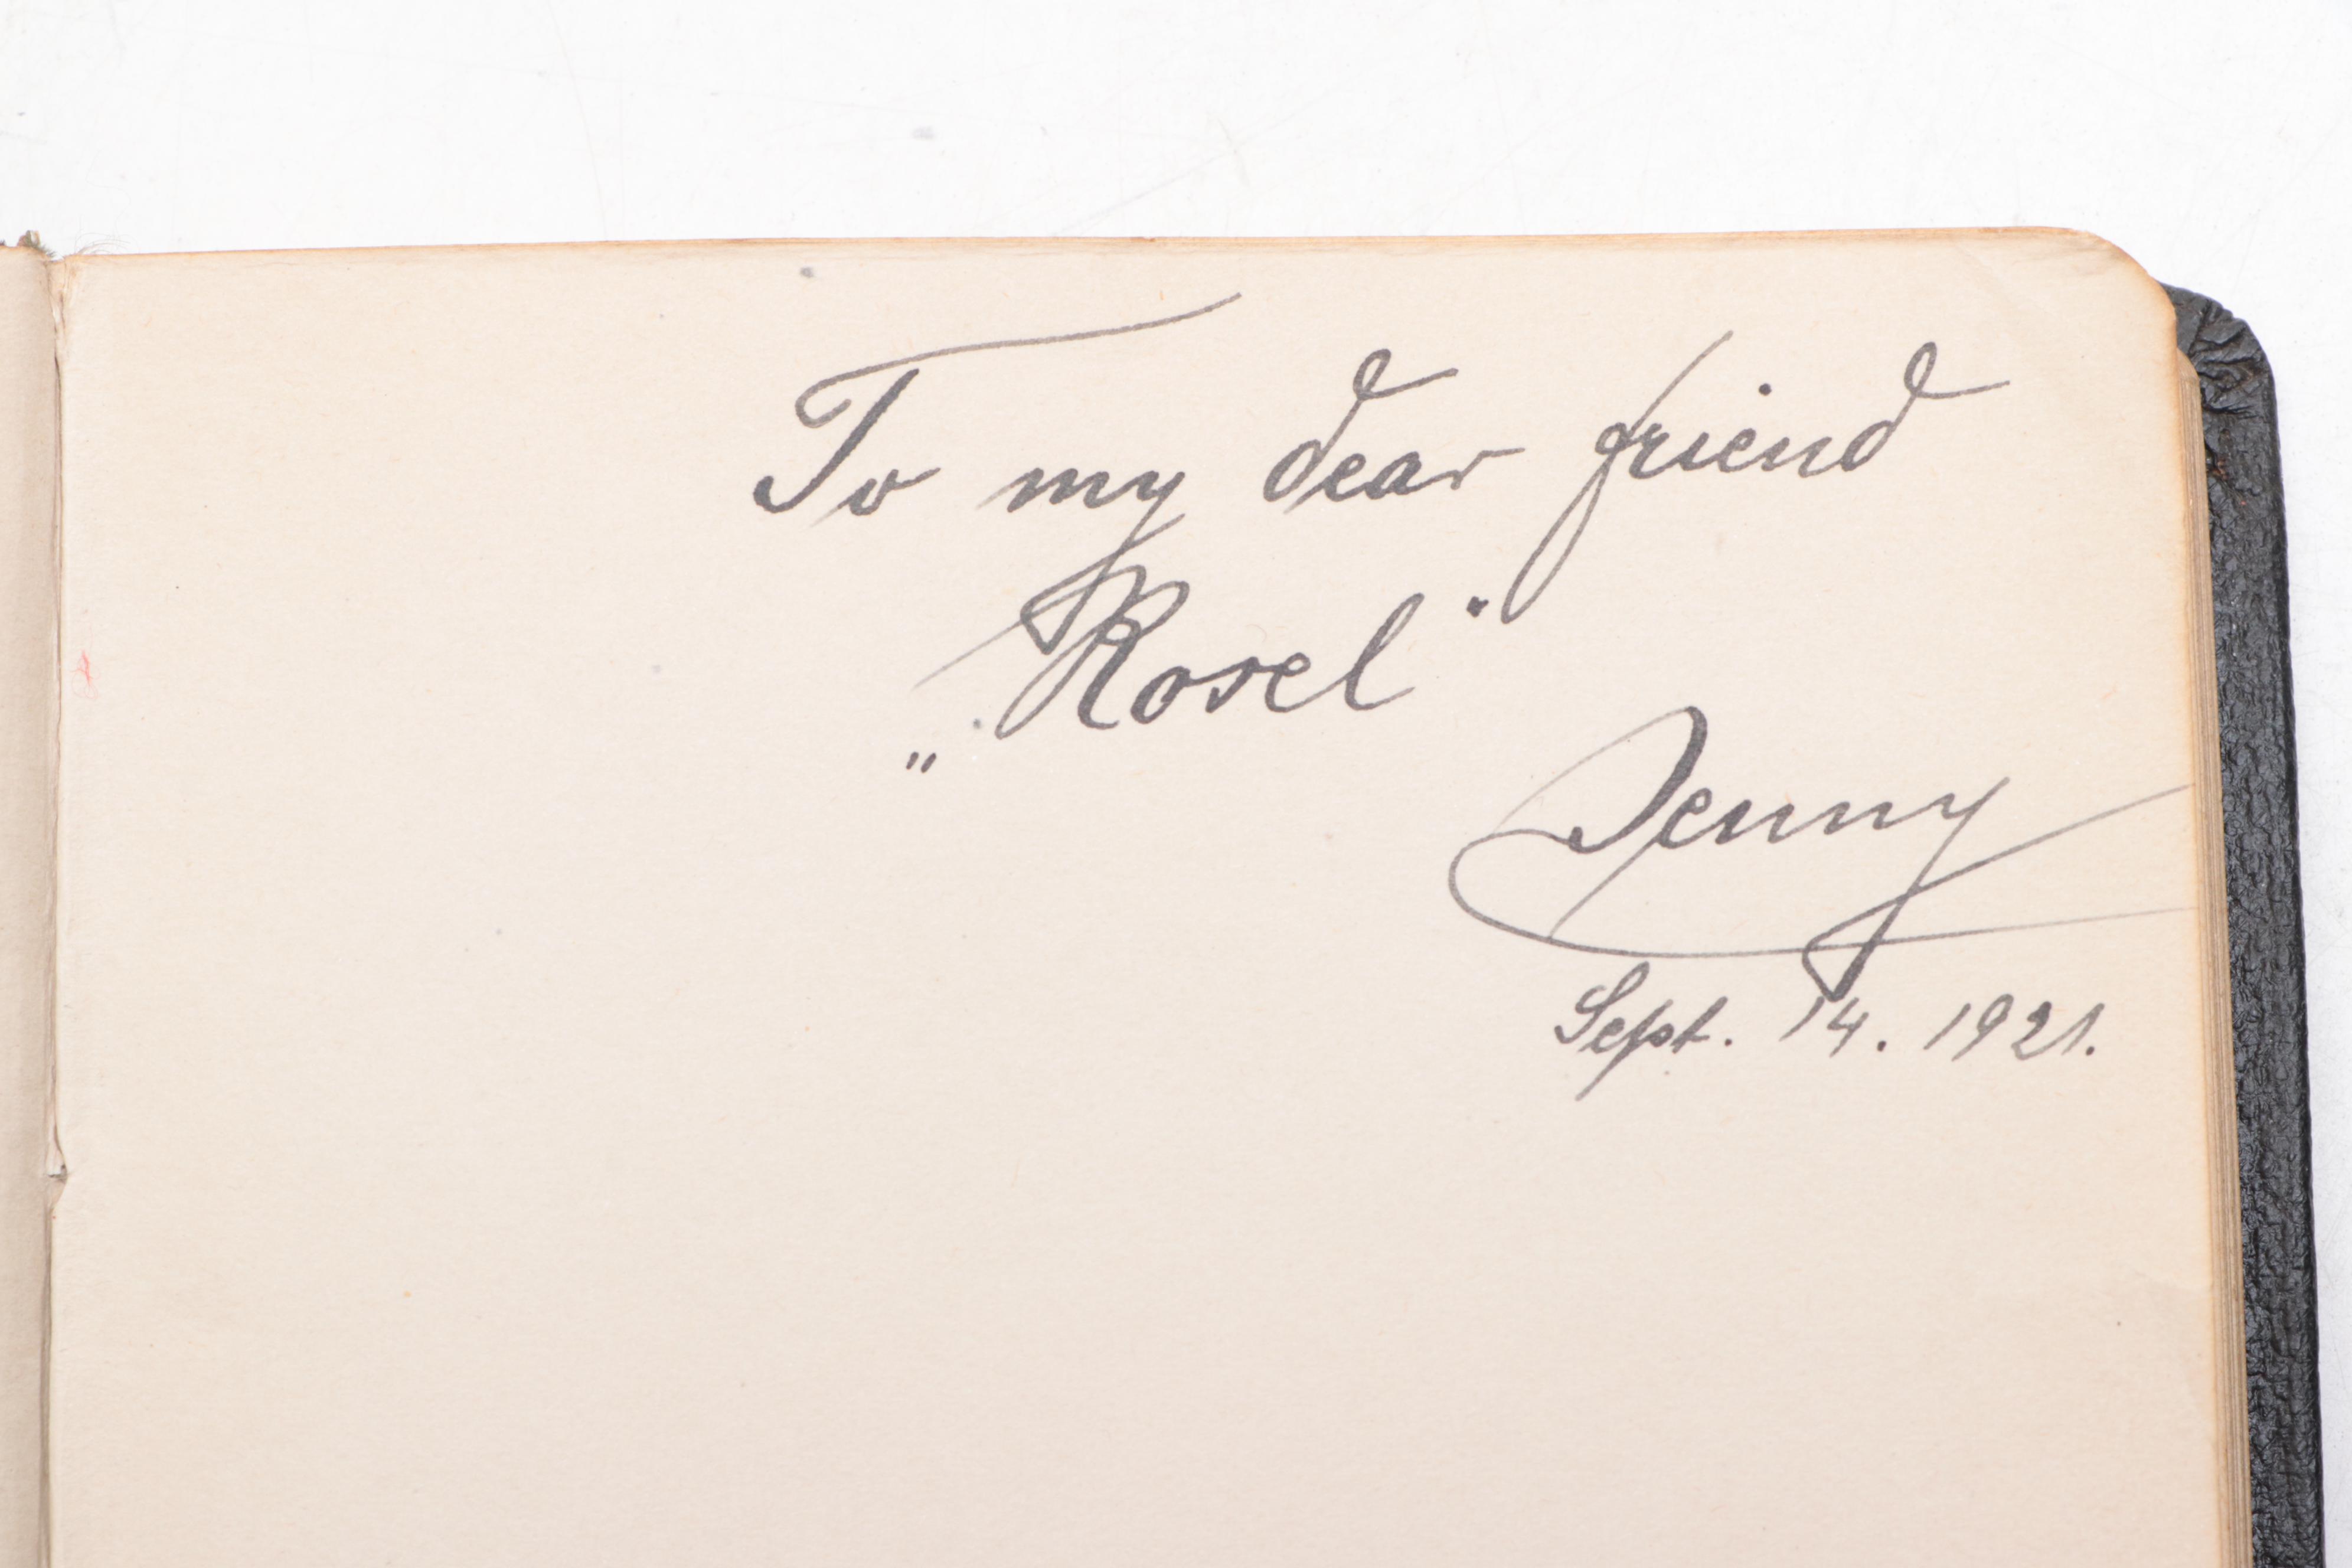 To my dear friend
„Rosel"
Jenny
Sept. 14. 1921.